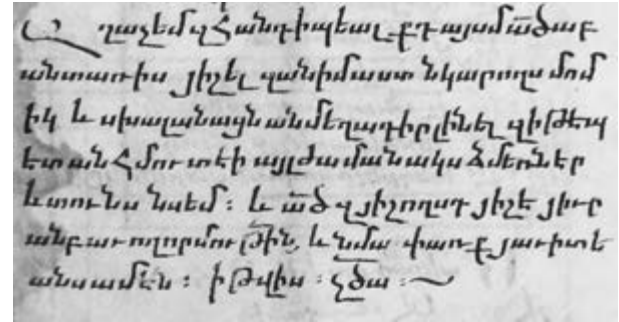 Աղաչեմ զհանդիպեալքդ այսմ ա՟ծաբ
անտառիս յիշել զանիմաստ նկարողս մոմ
իկ և սխալանացն անմեղադիր լինել զի թէպ
ետ անհմուտ էի այլ ժամանակս ձմեռն եր
և տունս նսեմ : և ա՟ծ զյիշողսդ յիշէ յիւր
անբաւ ողորմութին, և նմա փառք յաւիտե
անս ամէն : ի թվիս : չծա :